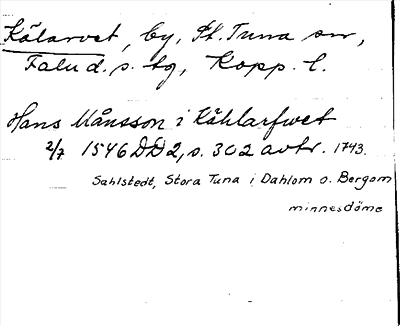 Kälarvet, by, St. Tuna sn,
Falu d. s. tg, Kopp. l.
Hans Månsson i Kählarfwet
2/7 1546 DD 2, s. 302 avtr. 1743.
Sahlstedt, Stora Tuna i Dahlom o. Bergom
minnesdöme